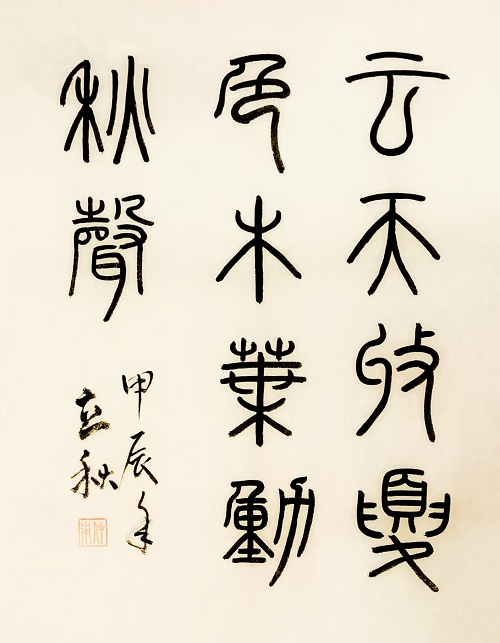 云天收夏
色木葉動
秋聲
甲辰年
立秋